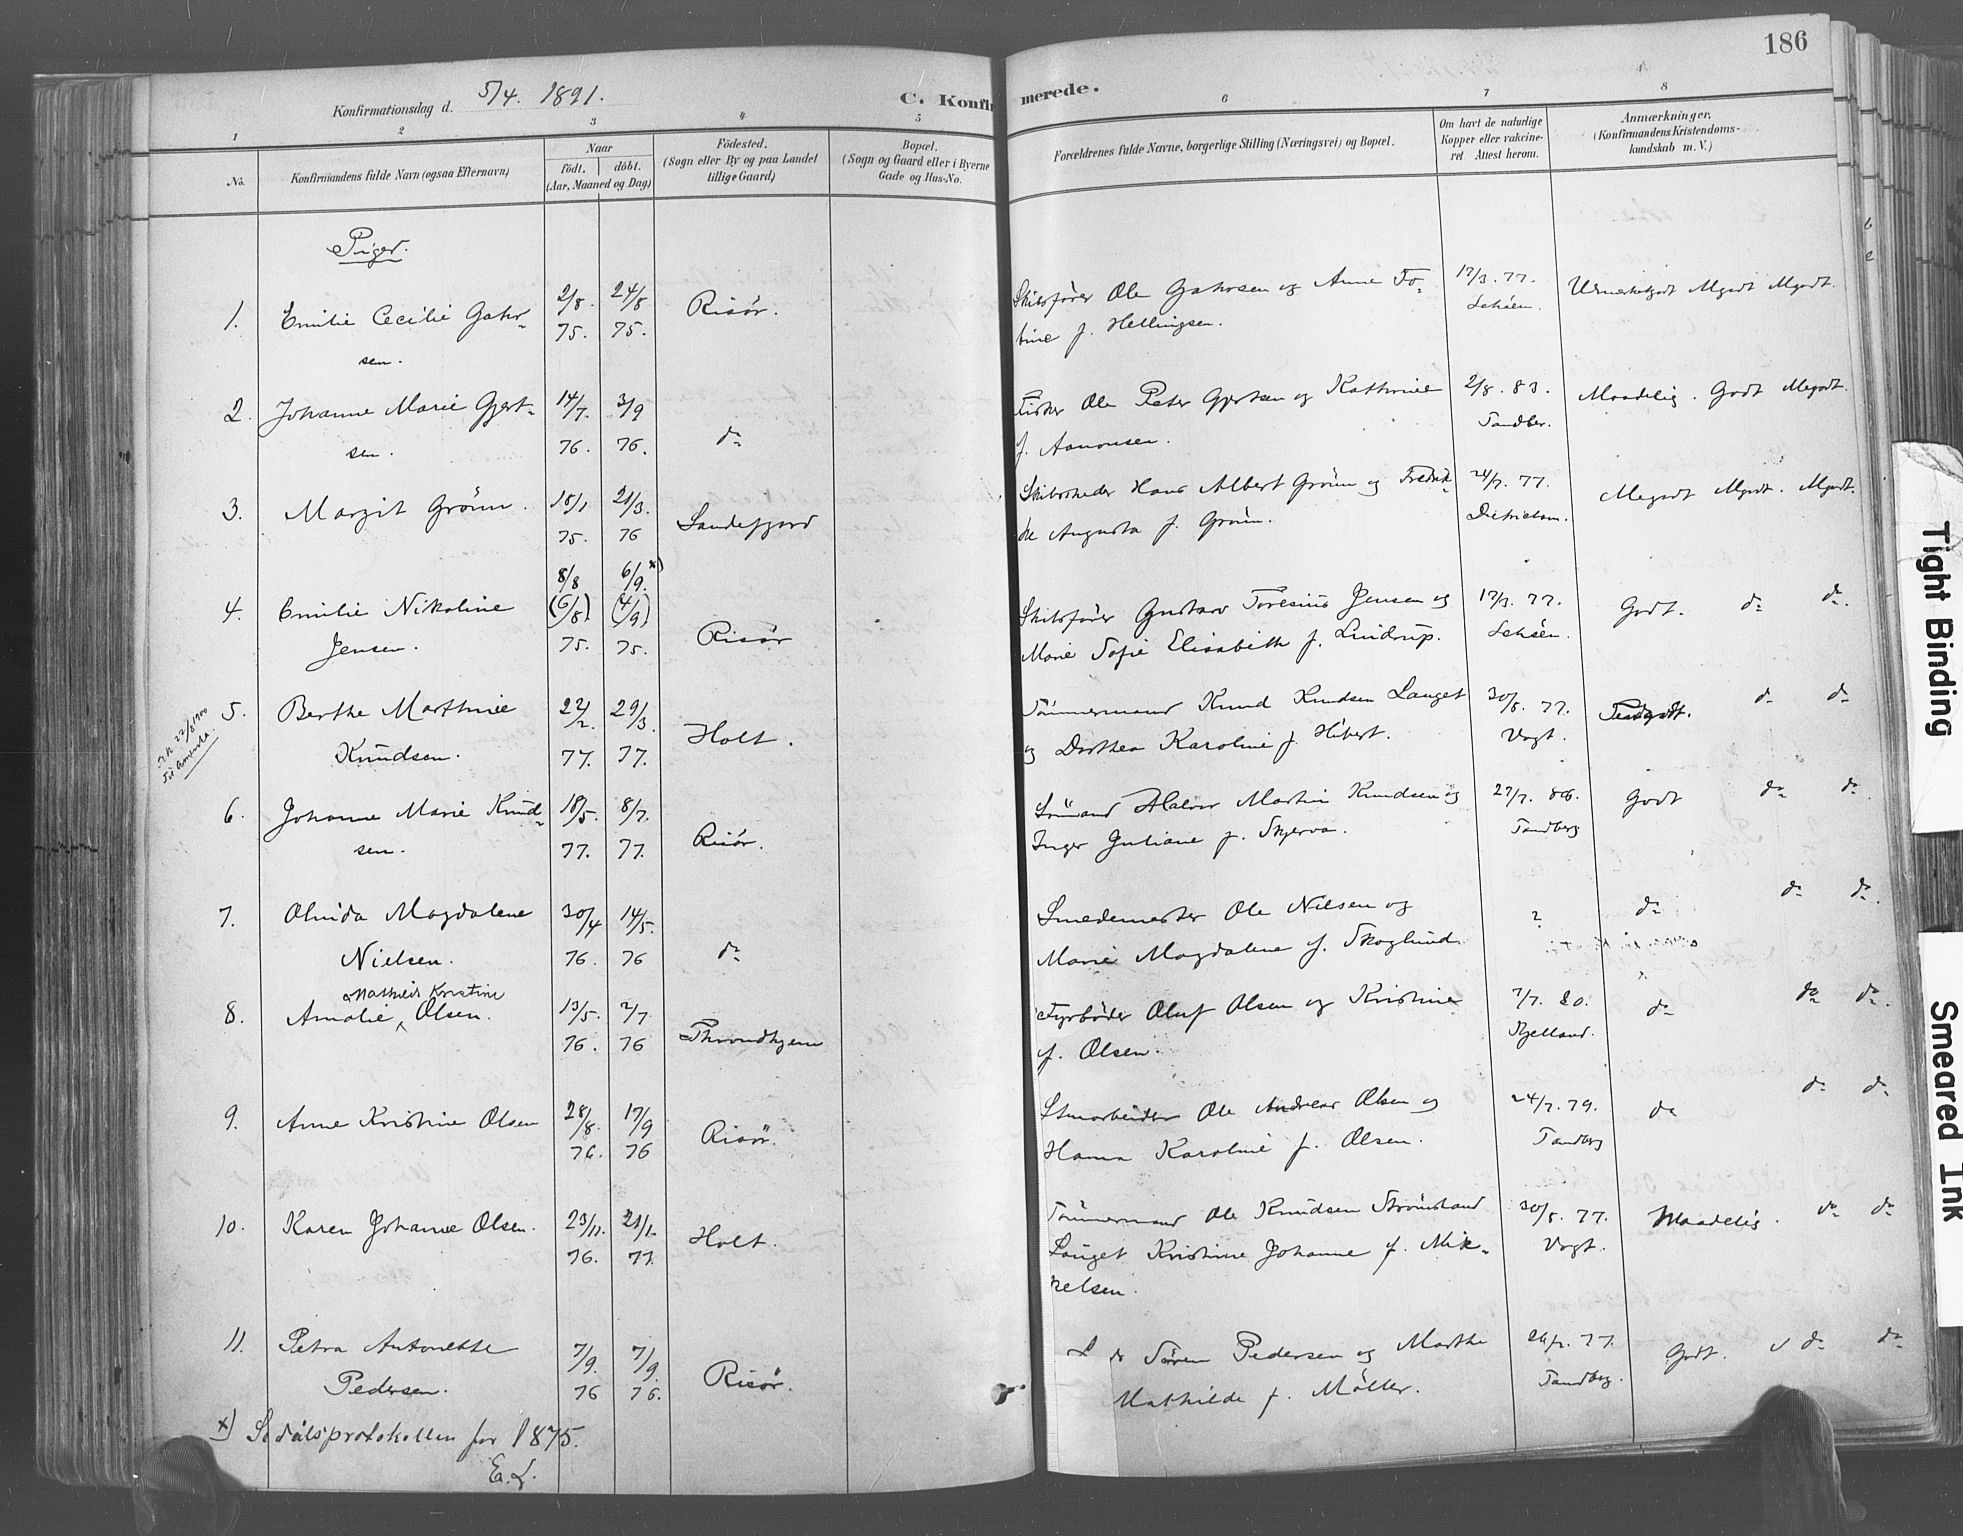 186
Konfirmationsdag d. 5/4. 1891.
C. Konfirmerede.
1 2 3 4 5 6 7 8
No.
Konfirmandens fulde Navn (ogsaa Efternavn)
Naar
födt. döbt.
(Aar, Maaned og Dag)
Födested.
(Sogn eller By og paa Landet
tillige Gaard)
Bopæl.
(Sogn og Gaard eller i Byerne
Gade og Hus-No.
Forældrenes fulde Navne, borgerlige Stilling (Næringsvei) og Bopæl.
Om havt de naturlige
Kopper eller vakcine-
ret Attest herom.
Anmærkninger.
(Konfirmandens Kristendoms-
kundskab m. V.)
Piger.
1. Emilie Cecilie Gahr- 2/8. 24/8 Risör. Skibsfører Ole Gahrsen og Anne To- 17/3. 77. Udmerketgodt Mgodt Mgodt.
sen. 75. 75. tine f. Hellingsen. Schöen.
2. Johanne Marie Gjert- 14/7. 3/9 do Fisker Ole Peter Gjertsen og Kathrine 2/8. 83. Maadelig. Godt Megodt.
sen. 76. 76. f. Aanonsen. Tandber.
3. Margit Grönn. 18/1 21/3. Sandefjord Skibsreder Hans Albert Grönn og Fredrik- 24/7. 77. Megodt Mgodt. Mgodt.
75. 76 ke Augusta f. Grönn. Dietrichson.
8/8 6/9. x)
4. Emilie Nikoline (6/8) (4/9) Risör Skibsfører Gustav Toresius Jensen og 17/3. 77. Godt. do do.
Jensen. 75. 75. Marie Sofie Elisabeth f. Lindrup. Schöen.
5. Berthe Marthine 22/2. 29/3. Holt. Tömmermand Knud Knudsen Lauget 30/8. 77. Testgodt. do do
Knudsen. 77. 77. og Dorthea Karoline f. Hibert. Vogt.
22/8 1900
til Amerika.
6. Johanne Marie Knud- 18/5. 8/7. Risör. Sömand Halvor Martin Knudsen og 27/7. 86. Godt do do.
sen. 77. 77. Inger Juliane f. Skjerva. Tandberg
7. Olvida Magdalene 30/4 14/5. do Smedemester Ole Nilsen og ? do do do.
Nielsen. 76. 76 Marie Magdalene f. Skoglund.
Mathilde Kristine
8. Amalie ^ Olsen. 13/5. 2/7 Throndhjem Fyrböder Oluf Olsen og Kristine 7/7. 80. do do do.
76. 76 f. Olsen. Kjelland.
9. Anne Kristine Olsen 28/8. 17/9 Risör. Stenarbeider Ole Andreas Olsen og 24/7. 79. do do do.
76. 76 Hanna Karoline f. Olsen. Tandberg
10. Karen Johanne Olsen. 23/11. 21/1. Holt. Tömmermand Ole Knudsen Strömsland 30/8. 77. Maadelig. do do
76. 77. Lauget Kristine Johanne f. Mik- Vogt.
kelsen.
11. Petra Antonette 7/9. 7/9. Risör. Sören Pedersen og Marthe 26/7. 77. Godt. do do
Pedersen. 76 76. Mathilde f. Möller. Tandberg.
x) Se daabsprotokollen for 1875.
E. L.
Tight Binding
Smeared Ink